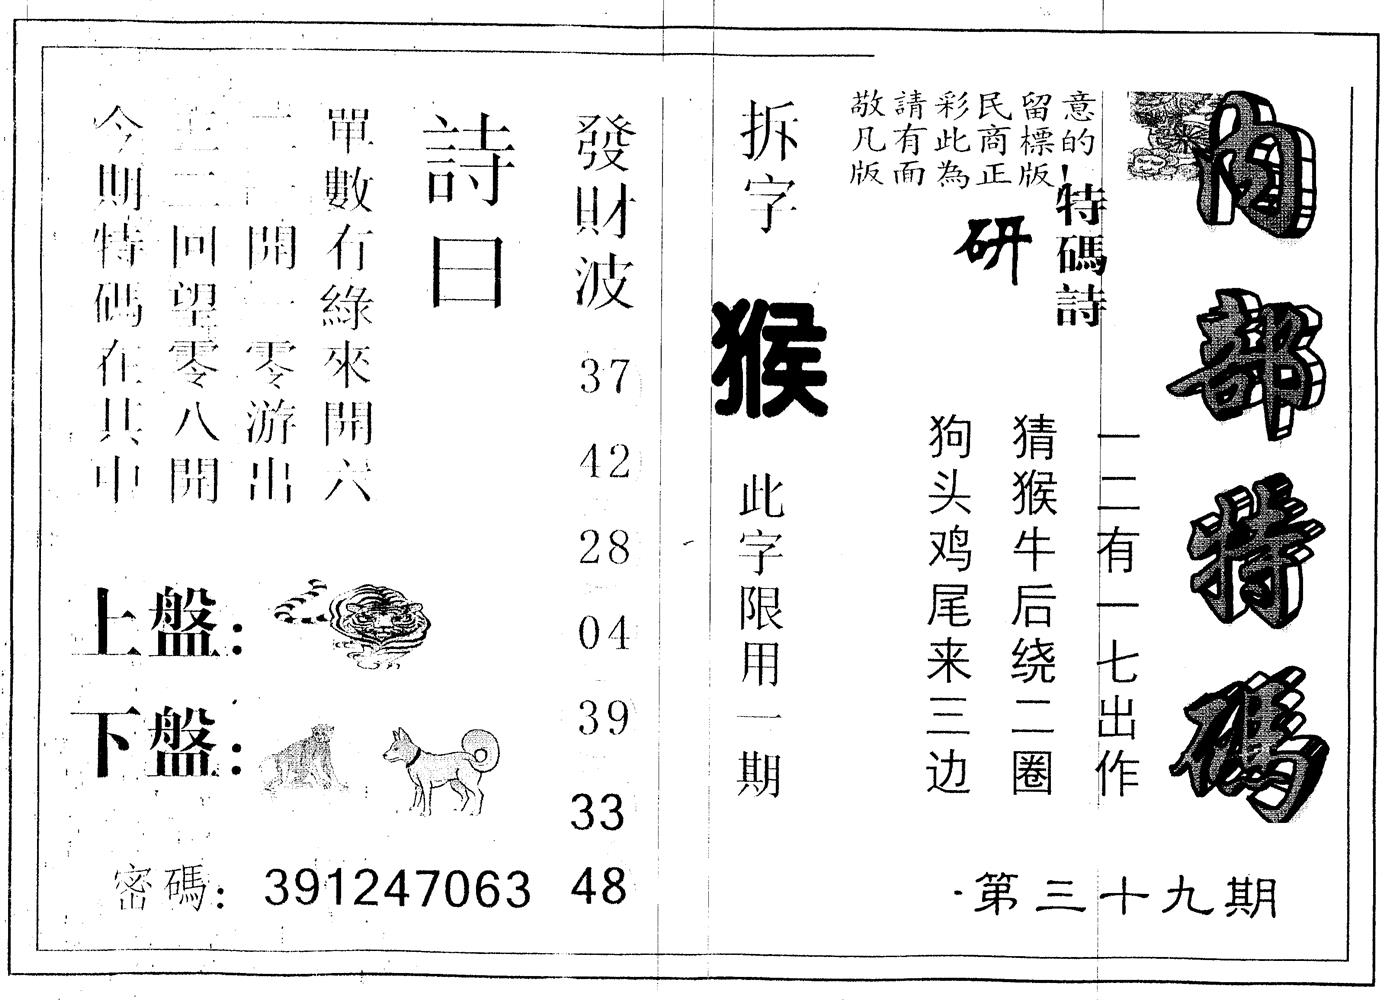 內部特碼
第三十九期
敬請彩民留意
凡有此商標的
版面為正版！
特碼詩
研
一二有一七出作
猜猴牛后绕二圈
狗头鸡尾来三边
拆字
猴
此字限用一期
發財波
37
42
28
04
39
33
48
詩曰
單數冇綠來開六
開一零游出
二回望零八開
今期特碼在其中
上盤：
下盤：
密碼：391247063